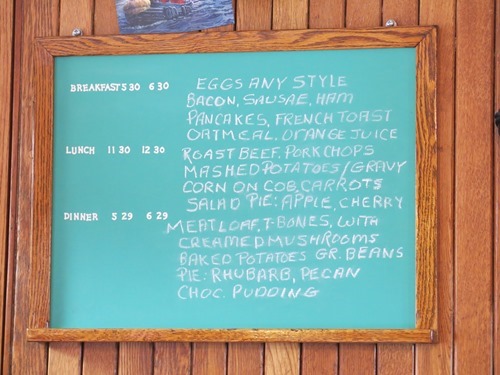 BREAKFASTS 30 6 30 EGGS ANY STYLE
BACON, SAUSAE, HAM
PANCAKES, FRENCH TOAST
OATMEAL, ORANGE JUICE
LUNCH 11 30 12 30 ROAST BEEF, PORK CHOPS
MASHED POTATOES/GRAVY
CORN ON COB, CARROTS
SALAD PIE: APPLE, CHERRY
DINNER 5 29 6 29 MEAT LOAF, T-BONES, WITH
CREAMED MUSHROOMS
BAKED POTATOES GR. BEANS
PIE: RHUBARB, PECAN
CHOC. PUDDING